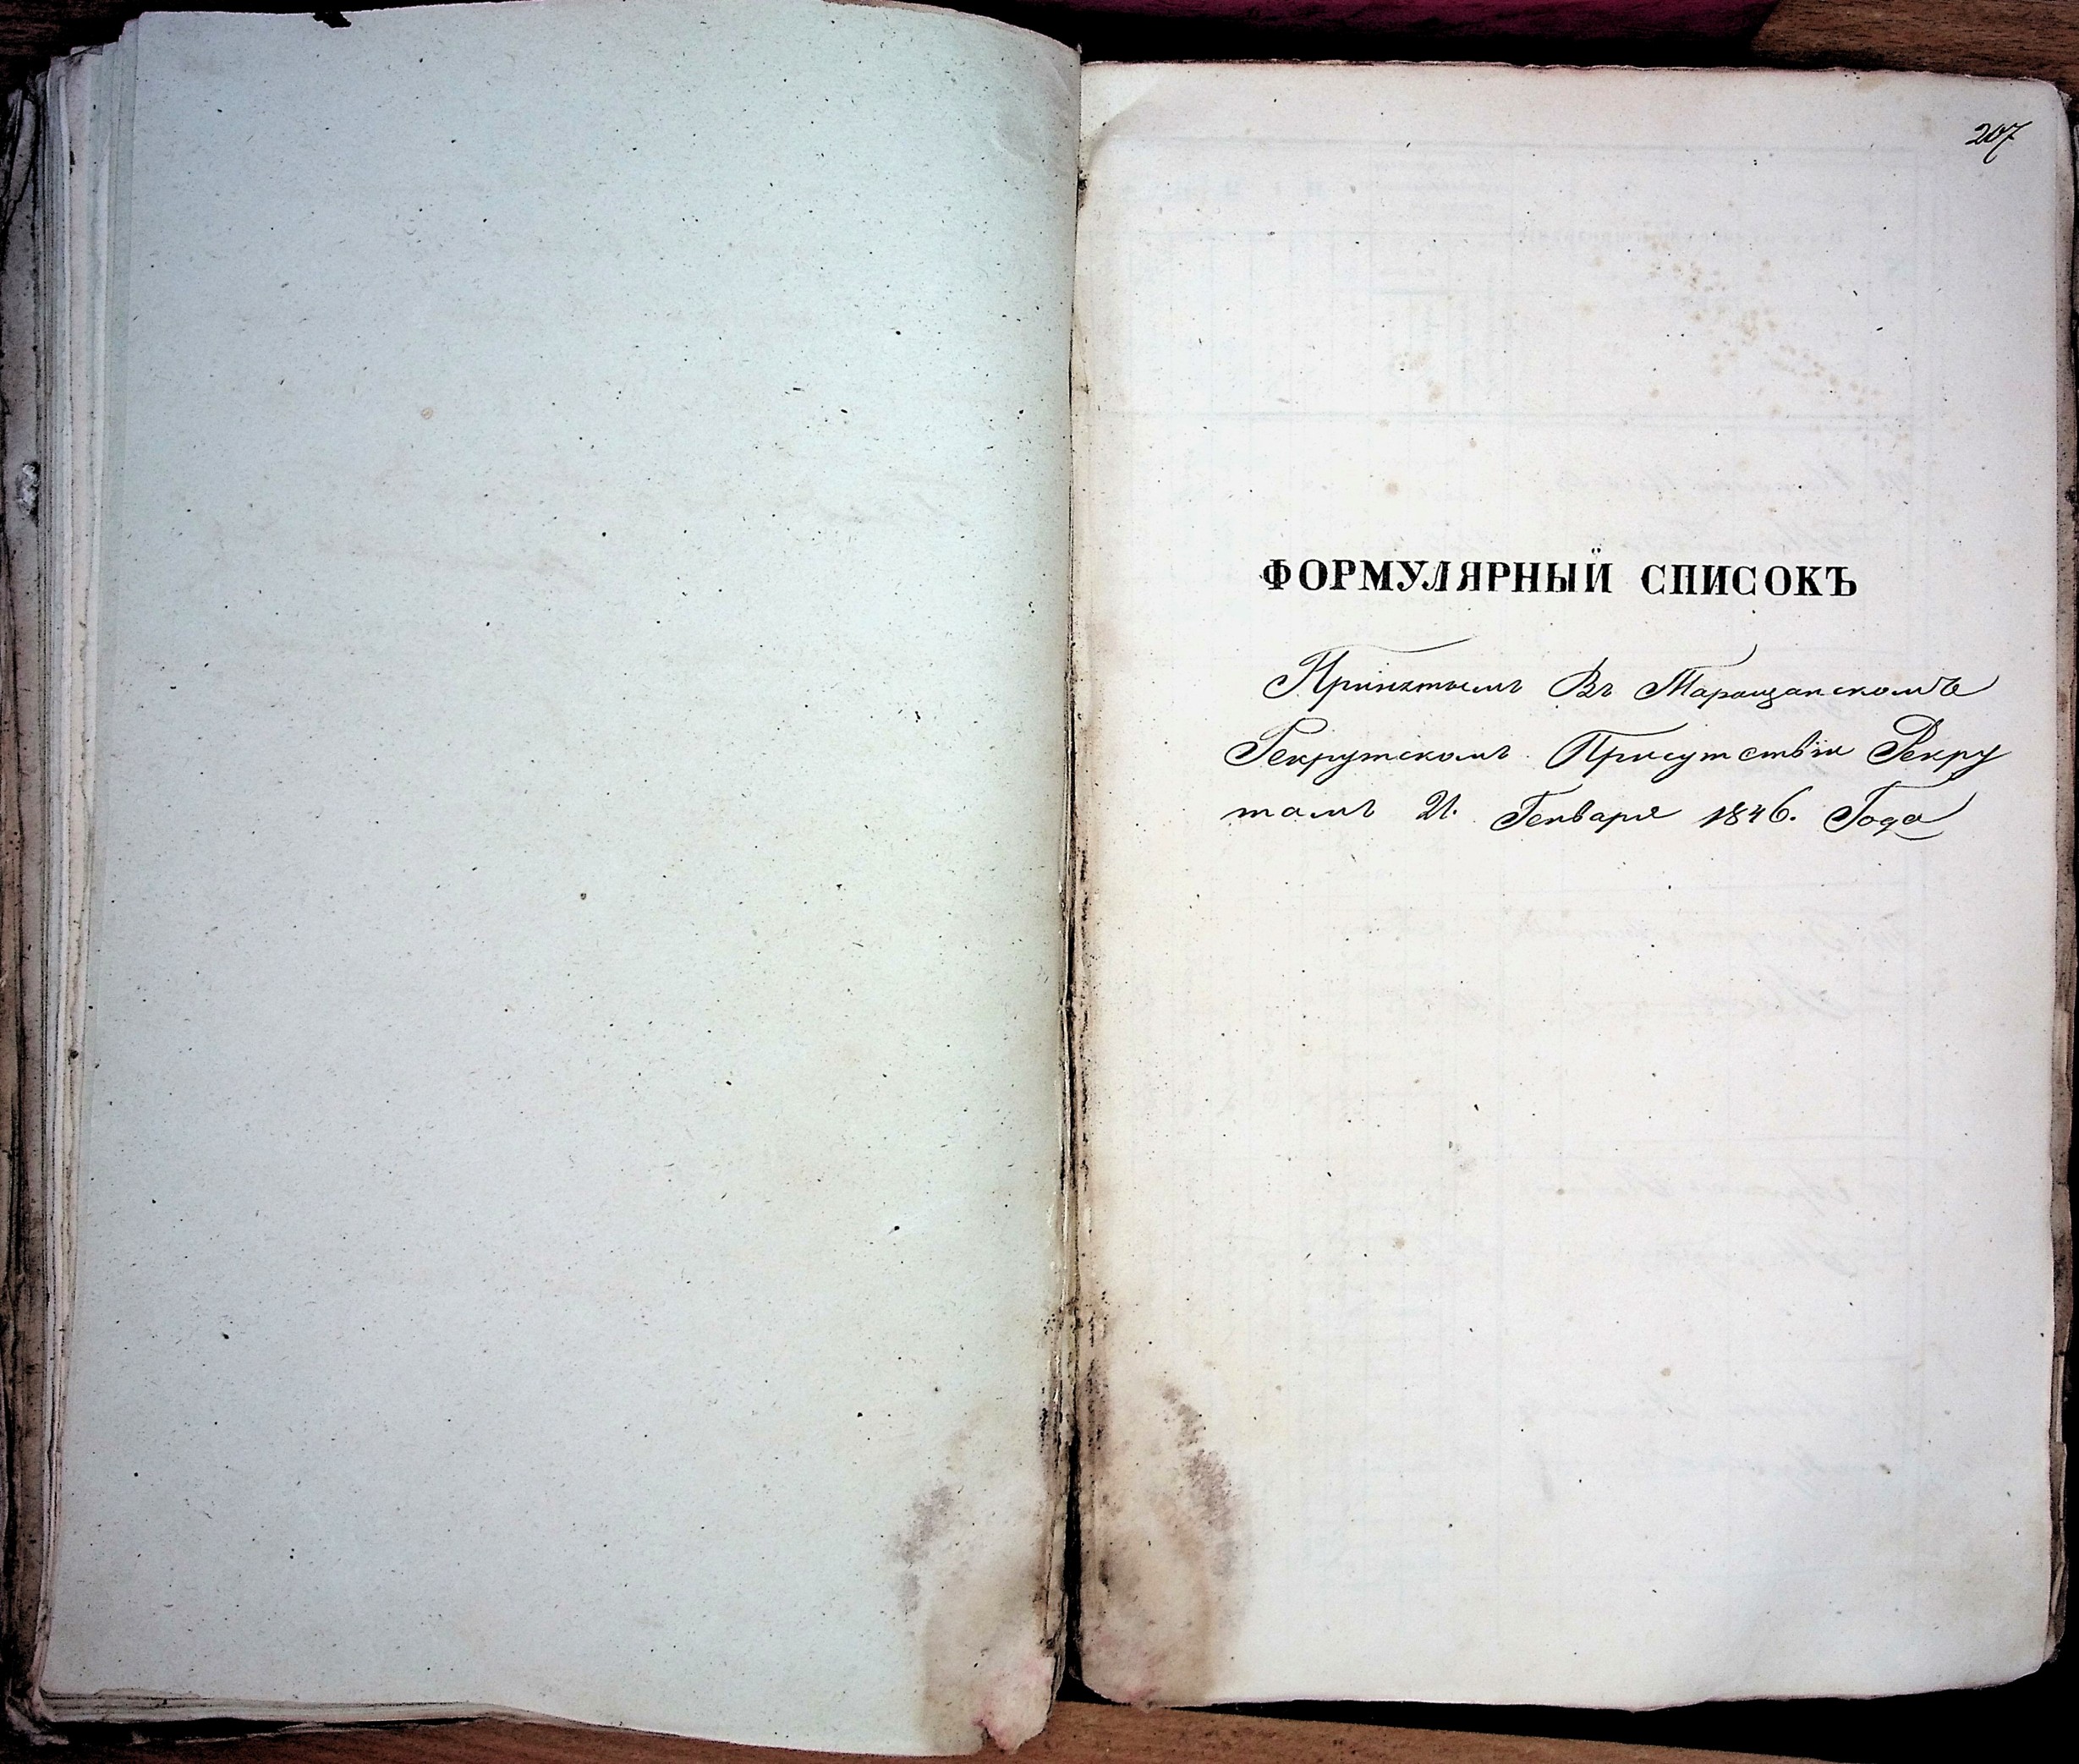 207
ФОРМУЛЯРНЫЙ СПИСОКЪ
Принятымъ Въ Таращанскомъ
Рекрутскомъ Присутствіи Рекру
тамъ 21. Генваря 1846. Года